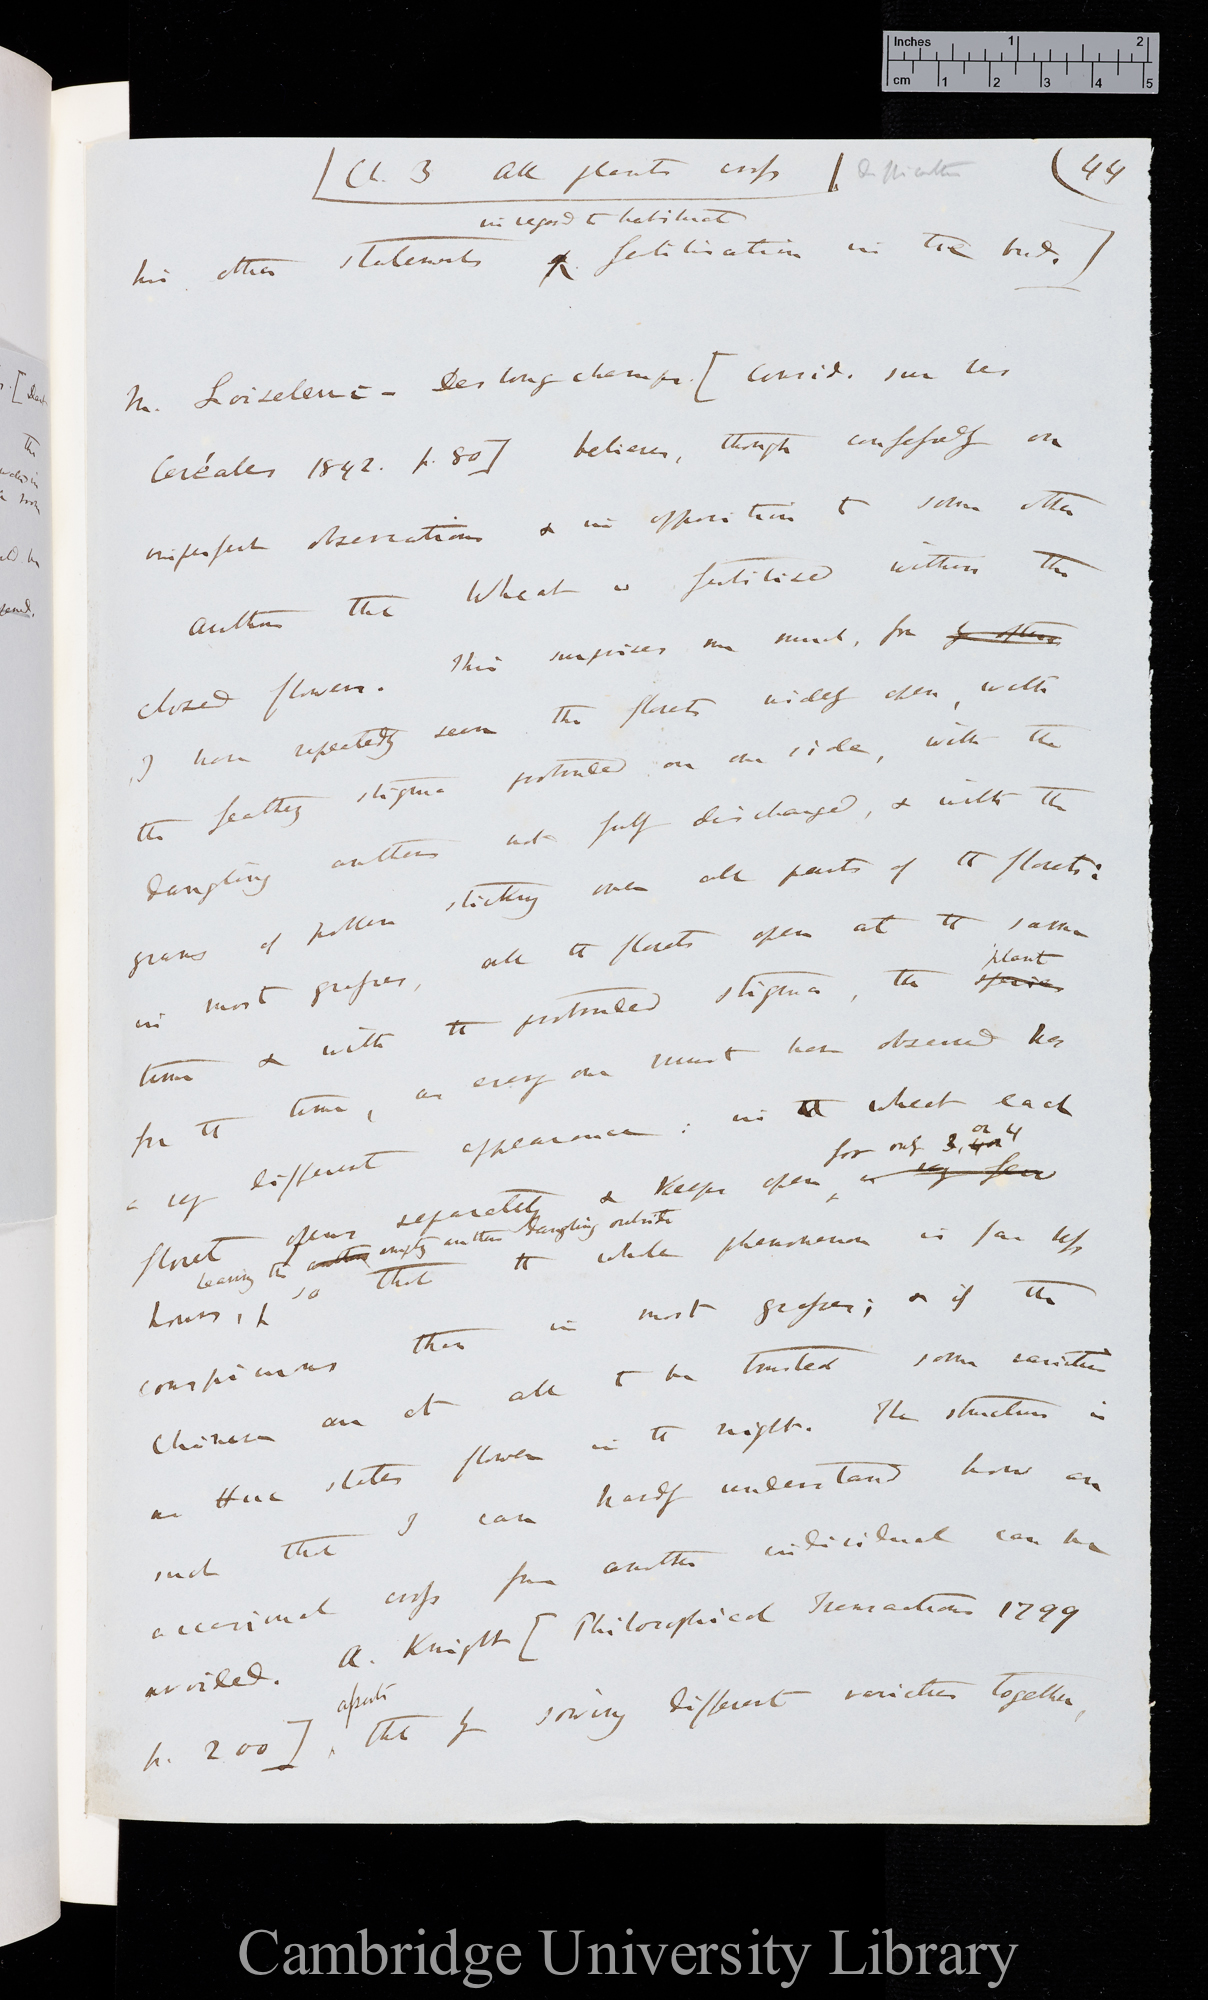 Inches 1 2
cm 1 2 3 4 5
Ch. 3 All plants cross Difficulties (44
in regard to habitual
his other statements fertilisation in the bud.]
M. Loiseleur-Deslongchamps. [Consid. sur les
Céréales 1842. p. 80] believes, though confessedly on
imperfect observations & in opposition to some other
authors that Wheat is fertilised within the
closed flowers. This surprises me much, for by often
I have repeatedly seen the florets widely open, with
the feathery stigma protruded on one side, with the
dangling anthers not fully discharged, & with the
grains of pollen sticking over all parts of the florets:
in most grasses, all the florets open at the same
plant
time & with the protruded stigma, the species
for the time, as every one must have observed has
a very different appearance: in the wheat each
for only 3, 4 or 4
floret opens separately & keeps open, a very few
leaving the anthers empty anthers dangling outside
hours, so that the whole phenomenon is far less
conspicuous than in most grasses; & if the
Chinese are at all to be trusted some varieties
in these states flower in the night. The structure is
such that I can hardly understand how an
occasional cross from another individual can be
avoided. A. Knight [Philosophical Transactions 1799
asserts
p. 200], that by sowing different varieties together,
Cambridge University Library